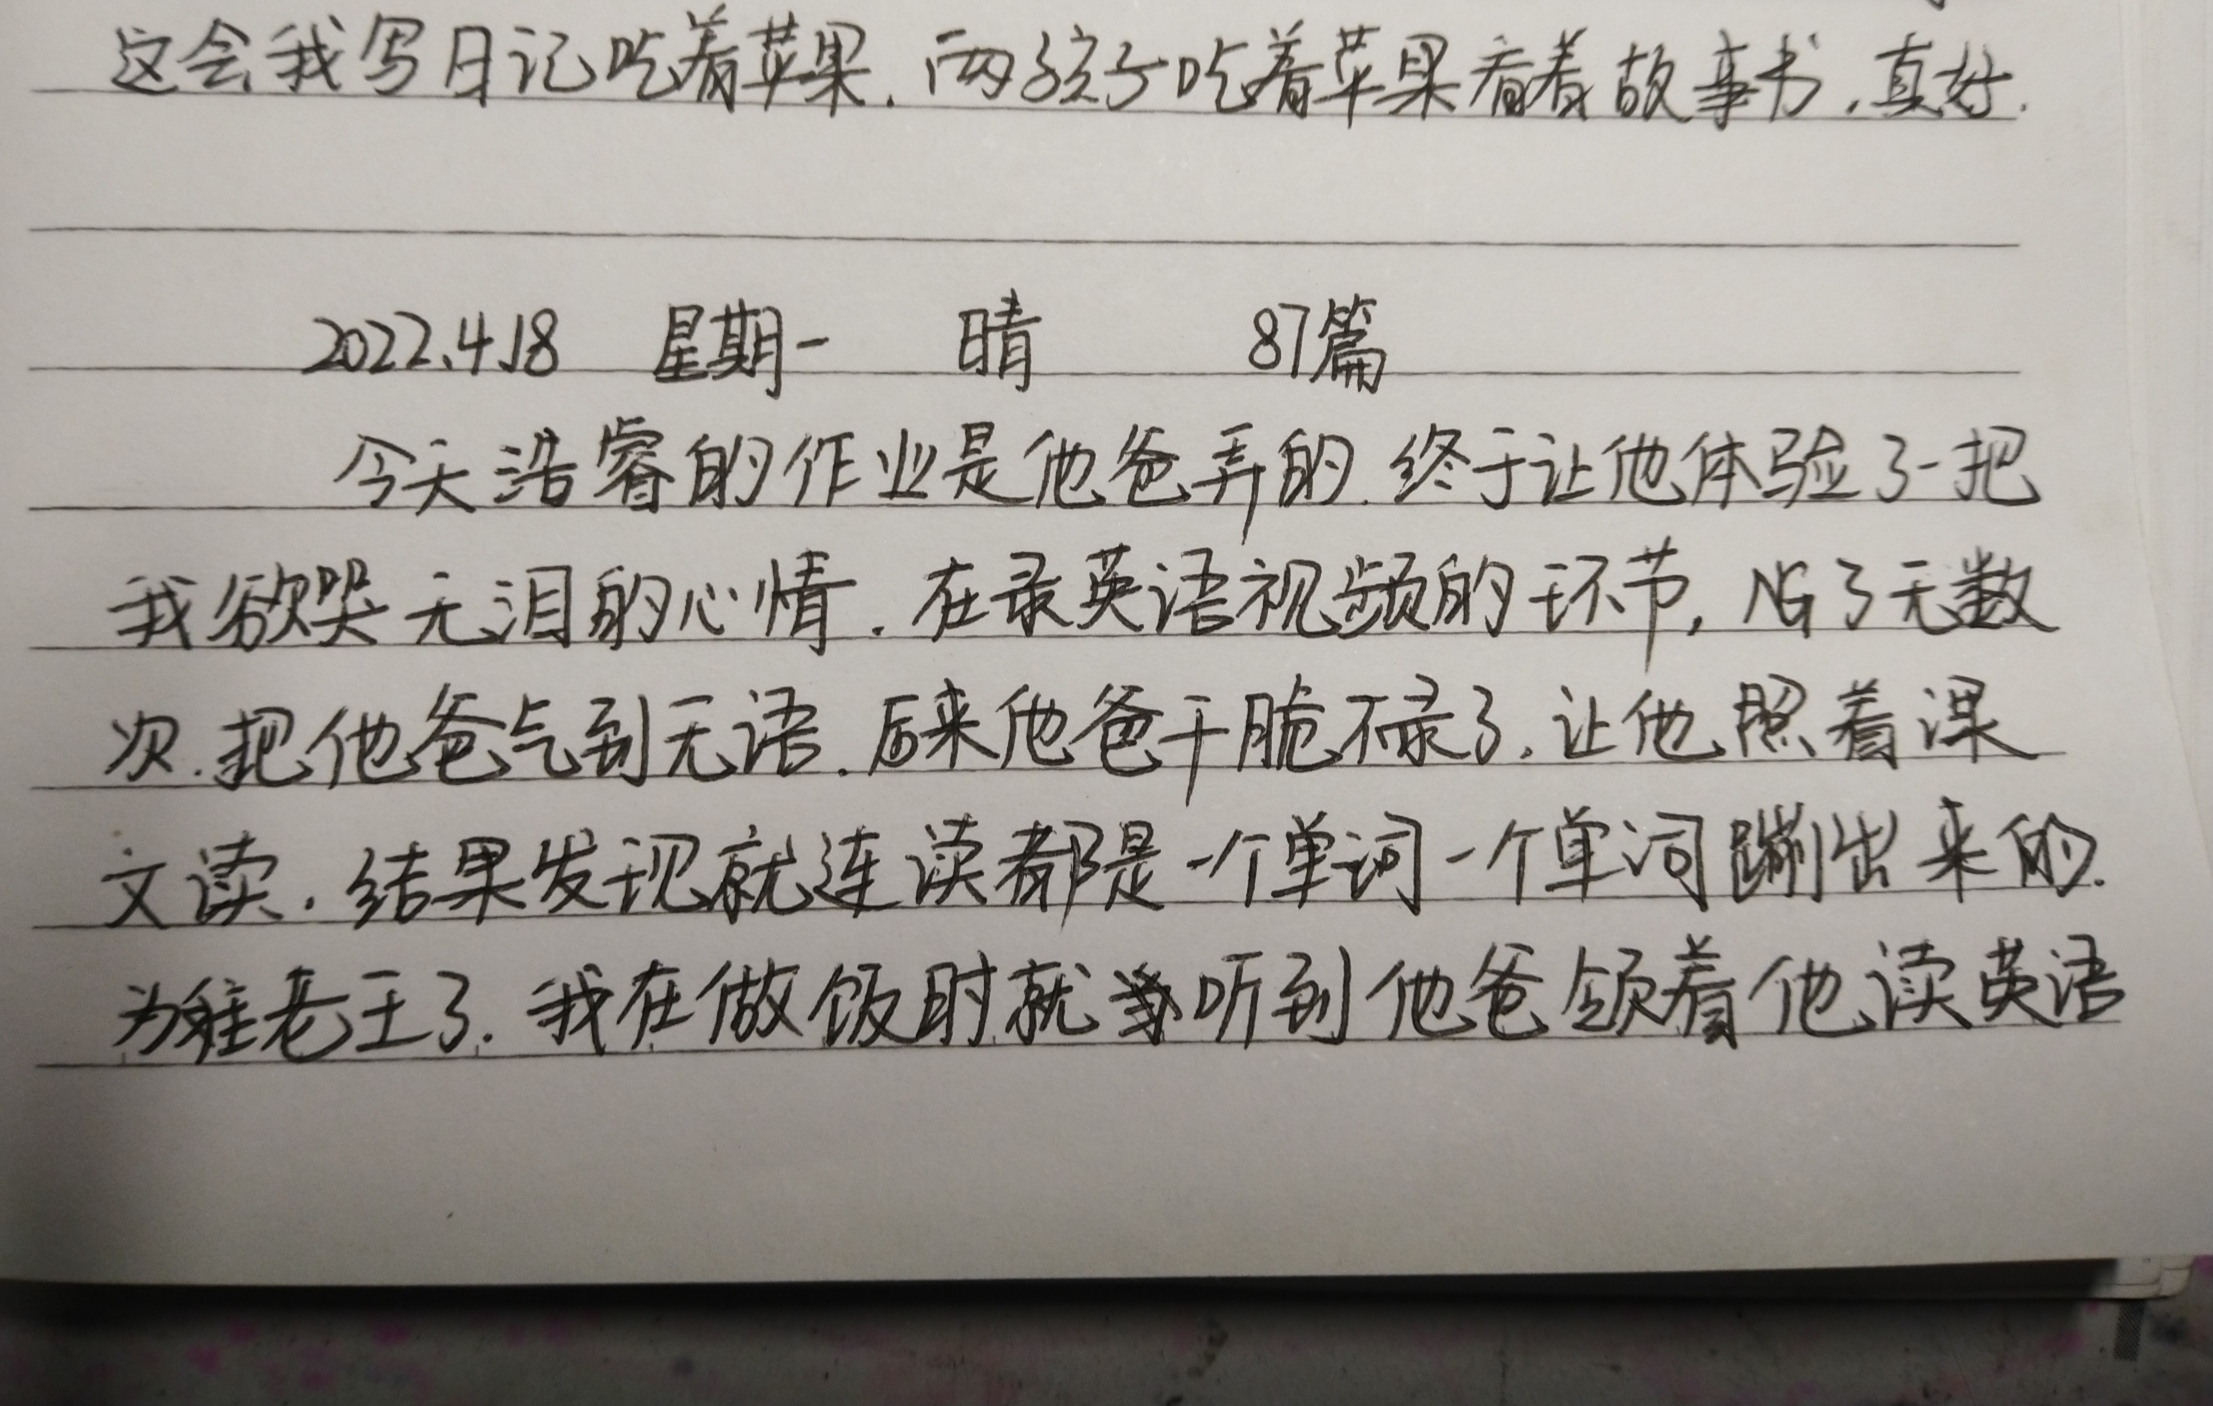 这会我写日记吃着苹果.两孩子吃着苹果看着故事书.真好.
2022.4.18 星期一 晴 87篇
今天浩睿的作业是他爸弄的.终于让他体验了一把
我欲哭无泪的心情.在录英语视频的环节,NG了无数
次.把他爸气到无语.后来他爸干脆不录了.让他照着课
文读.结果发现就连读都是一个单词一个单词蹦出来的.
为难老王了.我在做饭时就听到他爸领着他读英语